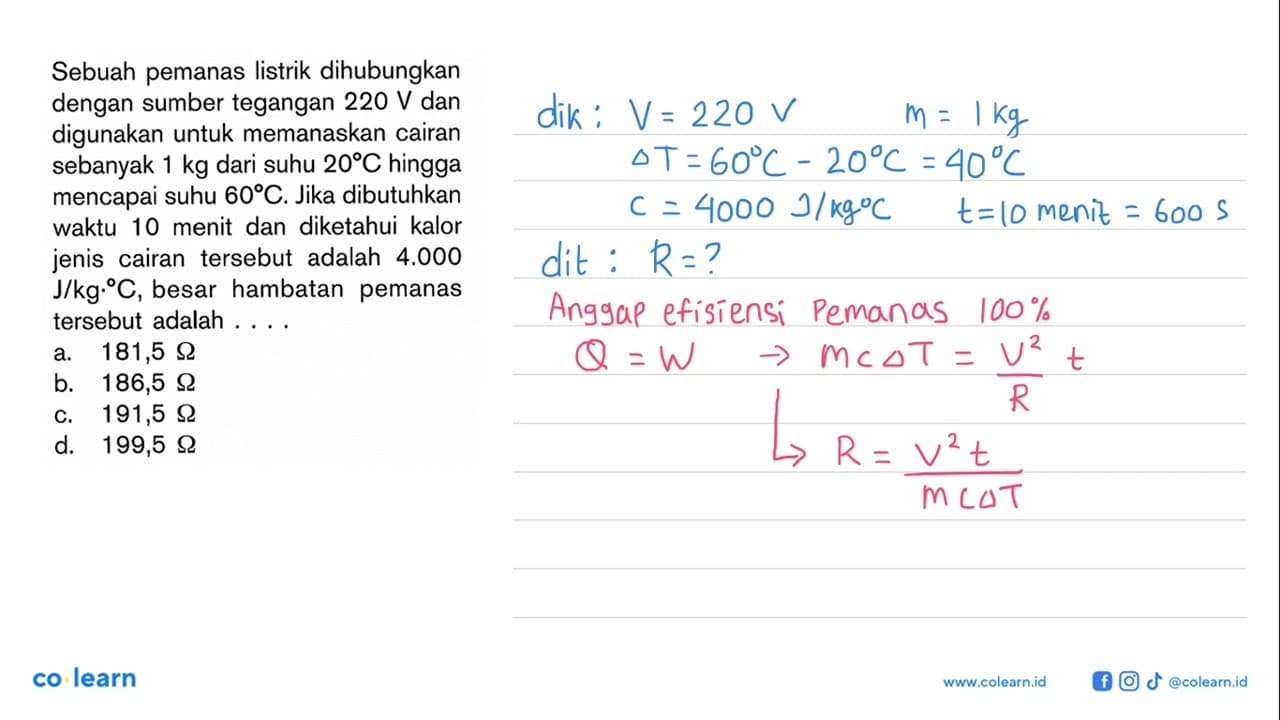 Sebuah pemanas listrik dihubungkan
dengan sumber tegangan 220 V dan
digunakan untuk memanaskan cairan
sebanyak 1 kg dari suhu 20°C hingga
mencapai suhu 60°C. Jika dibutuhkan
waktu 10 menit dan diketahui kalor
jenis cairan tersebut adalah 4.000
J/kg·°C, besar hambatan pemanas
tersebut adalah . . . .
a. 181,5 Ω
b. 186,5 Ω
c. 191,5 Ω
d. 199,5 Ω
dik : V = 220 V m = 1 kg
ΔT = 60°C - 20°C = 40°C
c = 4000 J/kg°C t = 10 menit = 600 s
dit : R = ?
Anggap efisiensi Pemanas 100%
Q = W → m c ΔT = V² t
R
↳ R = V² t
m c ΔT
co learn
www.colearn.id @colearn.id